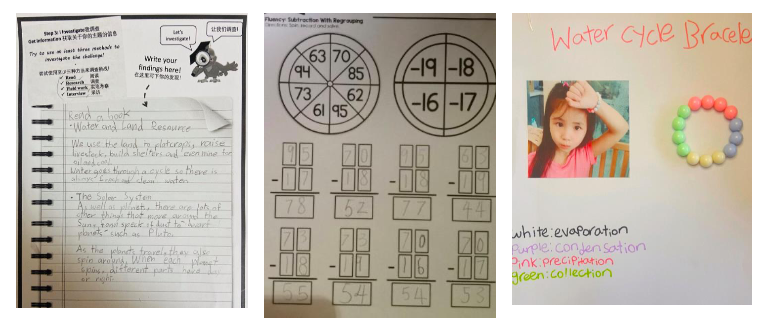 Step 5: Investigate做调查
Get information 获取关于你的主题的信息
Try to use at least three methods to
investigate the challenge!
尝试使用至少三种方法来调查挑战!
Read 阅读
Research 调查
Field work 实地考察
Interview 采访
Let's
investigate!
让我们调查!
Write your
findings here!
在这里写下你的发现!
Read a book
Water and Land Resource
We use the land to plant crops, raise
livestock, build shelters and even mine for
Water goes through a cycle so there is
always fresh and clean water
The Solar System
As well as planets, there are lots of
other things that move around the
Suns, and specks of dust to "dwarf
planets" such as Pluto.
As the planets travel, they also
spin around. When each planet
spins, different parts have day
or night.
Fluency: Subtraction With Regrouping
63 70
94 85
73 62
61 95
-19 -18
-16 -17
95 95 63
- 17 - 18 - 18 - 19
78 52 77 44
73 73 70 70
- 18 - 19 - 16 - 17
55 54 54 53
Water cycle Bracele
white:evaporation
Purple:condensation
Pink:precipitation
green:collection